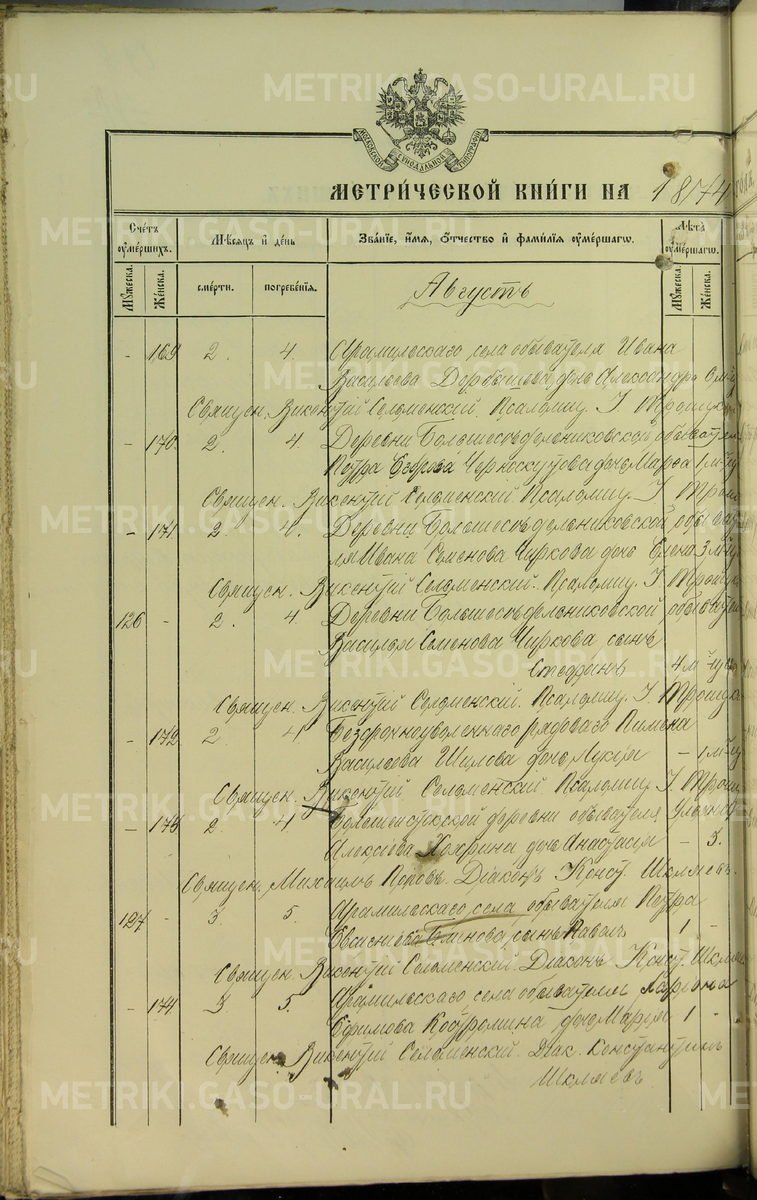 МОСКОВСКОЙ СѴНОДАЛЬНОЙ ТИПОГРАФІИ
МЕТРИ́ЧЕСКОЙ КНИ́ГИ НА 1874
Счетъ ѹмершихъ. Мѣсяцъ и день Зва́нїе, и҆мя, Ѻтчество и҆ фами́лїя ѹме́ршагѡ. Лѣта ѹмершагѡ.
Мꙋжеска. Женска. сме́рти. погребе́нїя. Мꙋжеска. Женска.
Августъ
- 169 2. 4. Арамильскаго села обывателя Ивана
Васильева дочь Александра 6 м-ц
Священ. Викентій Соломенский. Псаломщ. І. Троицк
- 170. 2. 4 Деревни Большесѣдельниковской обывателя
Петра Егорова Черноскутова дочь Марѳа 1 м-ц
Священ. Викентій Соломенский Псаломщ. І. Троиц
- 171 2. 4. Деревни Большесѣдельниковской обывате
ля Ивана Семенова Чиркова дочь Елена 3 м-ц
Священ. Викентій Соломенский. Псаломщ. І. Троицк
126 - 2. 4. Деревни Большесѣдельниковской обывател
Василья Семенова Чиркова сынъ
Стефанъ 4 м-ц
Священ. Викентій Соломенский. Псаломщ. І. Троицк
- 172 2. 4 Безсрочноуволеннаго рядоваго Пимена
Васильева Шилова дочь Лукія - 1 м-ц
Священ. Викентій Соломенский Псаломщ. І. Троиц
- 173 2. 4 деревни обывателя
Алексѣева дочь Анастасія - 3.
Священ. Михаилъ Поповъ. Діаконъ Конст. Шкляевъ.
127 - 3. 5. Арамильскаго села обывателя Петра
сынъ Павелъ 1 -
Священ. Викентій Соломенский. Діаконъ Конст. Шкляе
- 174 3 5. Арамильскаго села обывателя
Ефимова Костромина дочь Марія 1 -
Священ. Викентій Соломенский. Діак. Константинъ
Шкляевъ.
METRIKI.GASO-URAL.RU